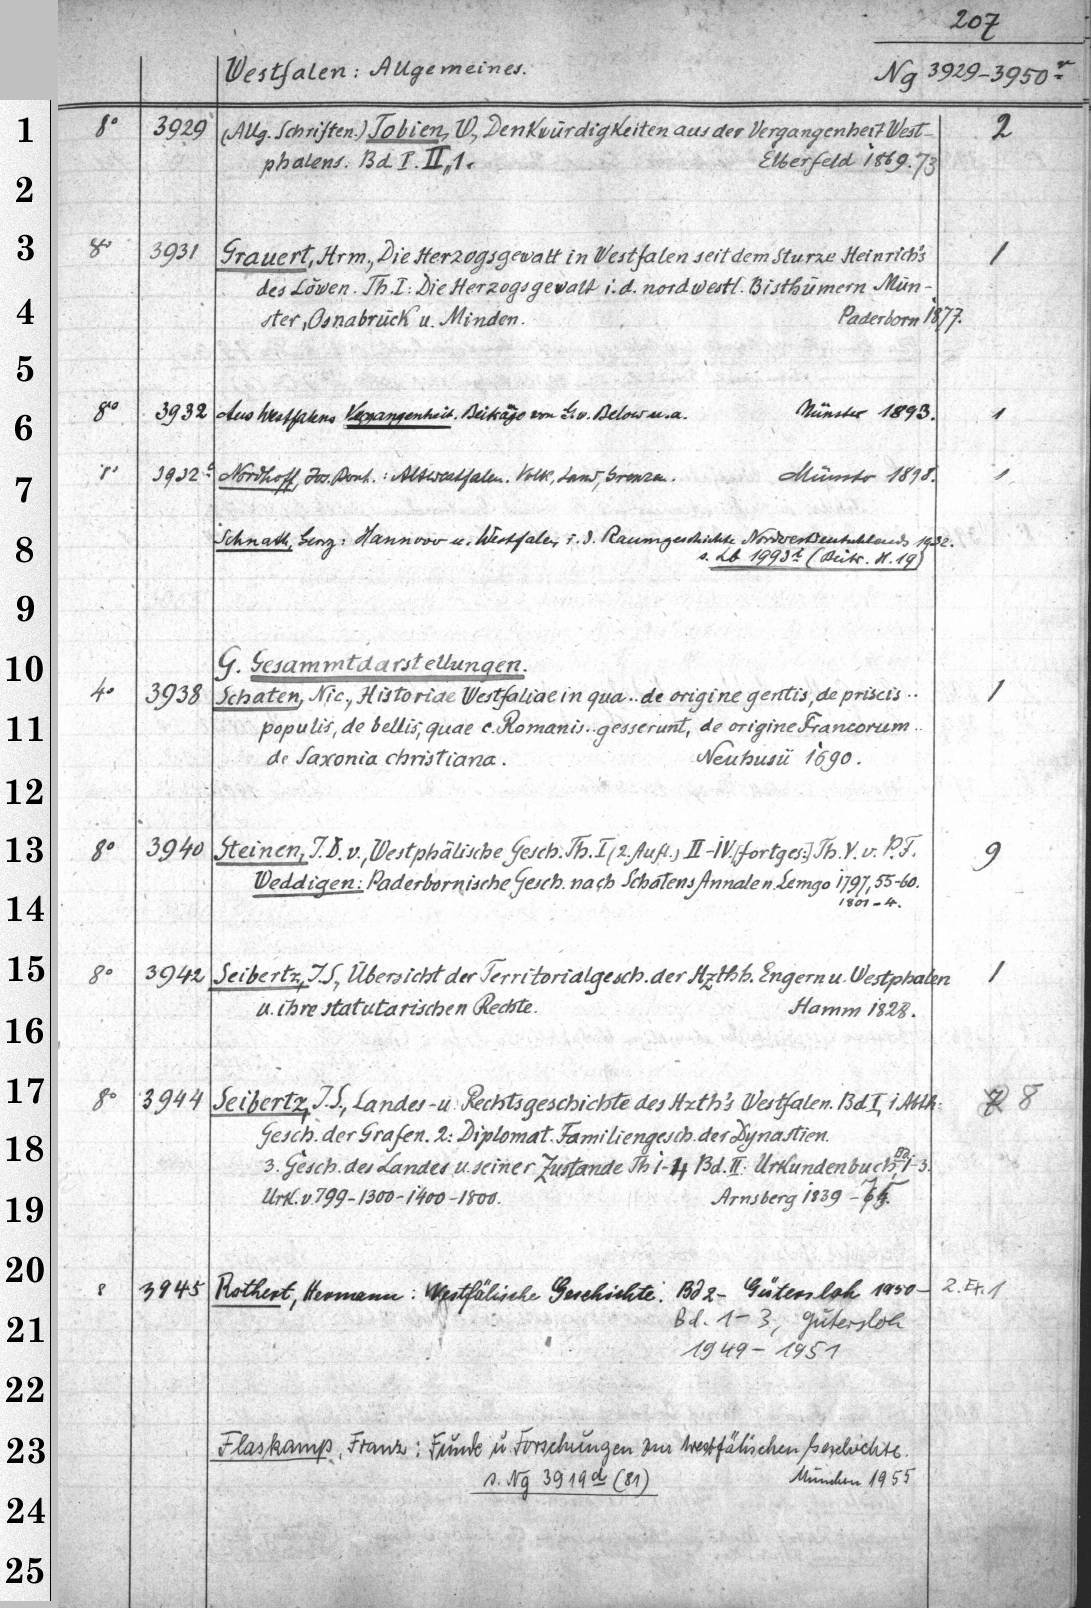 207
Westfalen: Allgemeines. Ng 3929-3950
1 8° 3929 (Allg. Schriften.) Tobien, W, Denkwürdigkeiten aus der Vergangenheit West- 2
phalens. Bd I. II,1. Elberfeld 1869.73
2
3 8° 3931 Grauert, Hrm., Die Herzogsgewalt in Westfalen seit dem Sturze Heinrich's 1
des Löwen. Th. I: Die Herzogsgewalt i. d. nordwestl. Bisthümern Mün-
4 ster, Osnabrück u. Minden. Paderborn 1877.
5
6 8° 3932 Aus Westfalens Vergangenheit. Beiträge von G. v. Below u. a. Münster 1893. 1
7 8° 3932 Nordhoff, Jos. : Altwestfalen. Volk, Land, Grenzen. Münster 1898. 1
8 Schnath, Georg: Hannover u. Westfalen i. d. Raumgeschichte Nordwestdeutschlands 1932.
s. Lb 1993 (Beitr. H. 19)
9
10 G. Gesammtdarstellungen.
4° 3938 Schaten, Nic., Historiae Westfaliae in qua .. de origine gentis, de priscis .. 1
11 populis, de bellis, quae c. Romanis .. gesserunt, de origine Francorum ..
de Saxonia christiana. Neuhusii 1690.
12
13 8° 3940 Steinen, J. D. v., Westphälische Gesch. Th. I (2. Aufl.) II-IV. [fortges:] Th. V. v. P. F. 9
Weddigen: Paderbornische Gesch. nach Schatens Annalen. Lemgo 1797, 55-60.
14 1801-4.
15 8° 3942 Seibertz, J. S., Übersicht der Territorialgesch. der Hzthh. Engern u. Westphalen 1
16 u. ihre statutarischen Rechte. Hamm 1828.
17 8° 3944 Seibertz, J. S., Landes- u. Rechtsgeschichte des Hzth's Westfalen. Bd I, 1 Abth: 7 8
18 Gesch. der Grafen. 2: Diplomat. Familiengesch. der Dynastien.
3. Gesch. des Landes u. seiner Zustände Th 1-4 Bd. II. Urkundenbuch, Bd. 1-3.
19 Urk. v 799-1300-1400-1800. Arnsberg 1839-75.
20 8 3945 Rothert, Hermann: Westfälische Geschichte. Bd 2- Gütersloh 1950- 2. Ex. 1
21 Bd. 1-3, Gütersloh
1949-1951
22
23 Flaskamp, Franz: Funde u. Forschungen zur westfälischen Geschichte.
s. Ng 3919d (81) München 1955
24
25